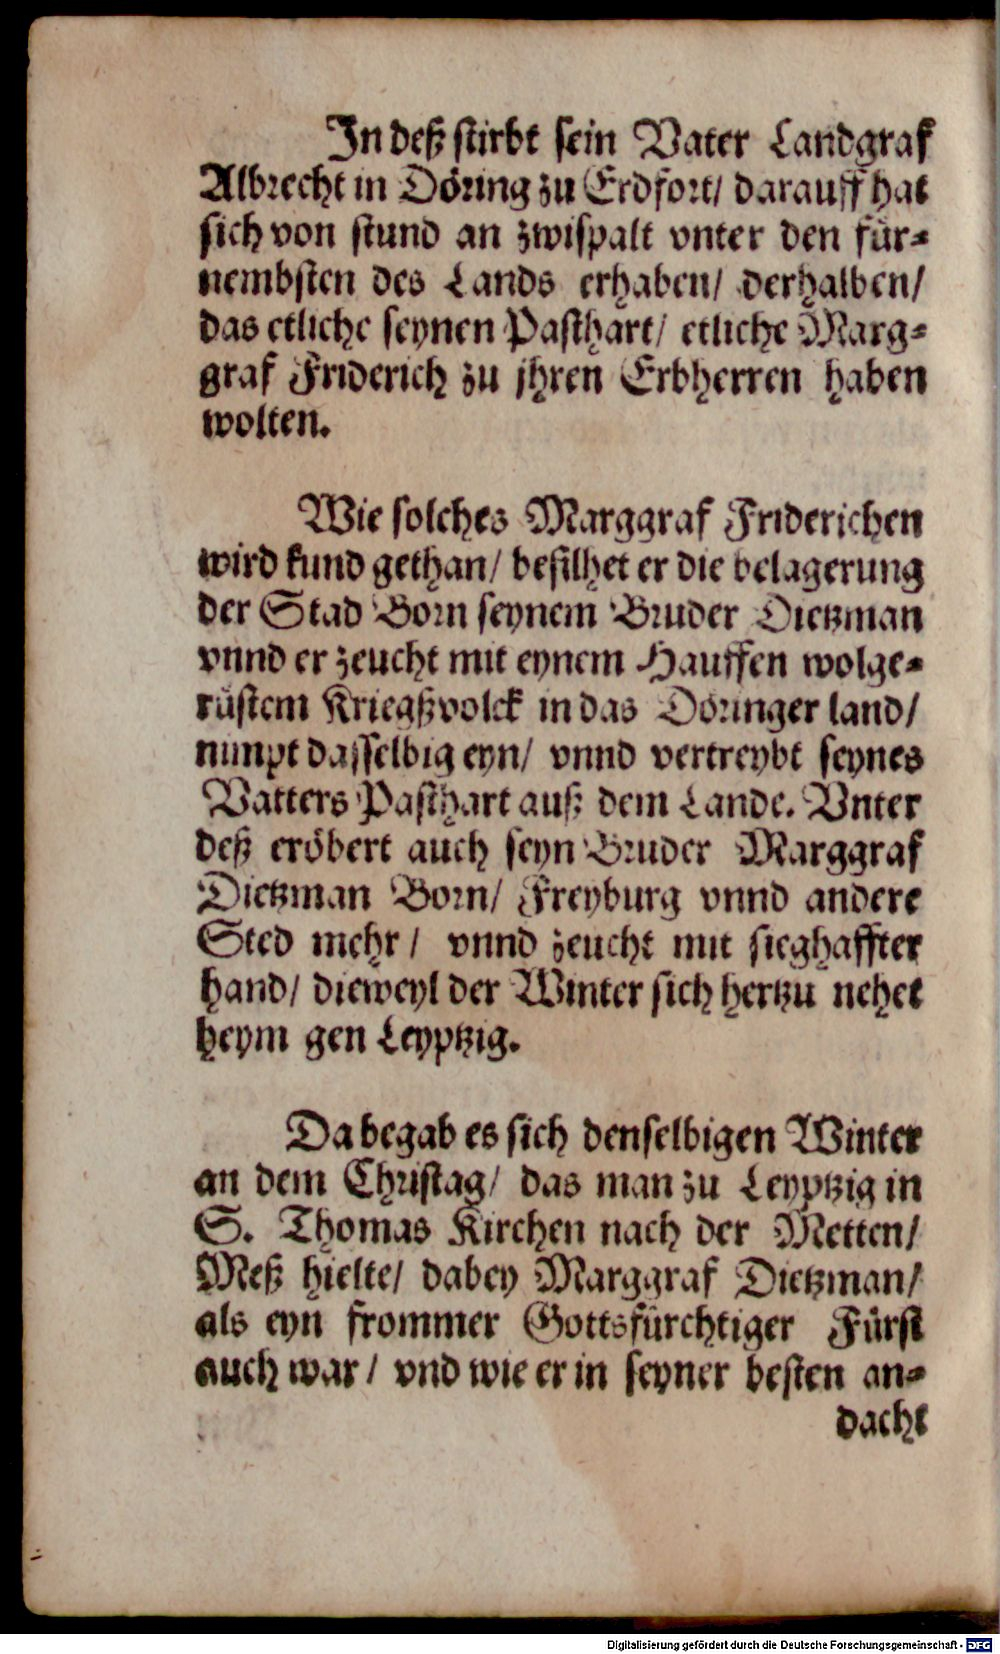 In deß stirbt sein Vater Landgraf
Albrecht in Döring zu Erdfort/ darauff hat
sich von stund an zwispalt vnter den für-
nembsten des Lands erhaben/ derhalben/
das etliche seynen Pasthart/ etliche Marg-
graf Friderich zu jhren Erbherren haben
wolten.
Wie solches Marggraf Friderichen
wird kund gethan/ befilhet er die belagerung
der Stad Born seynem Bruder Dietzman
vnnd er zeucht mit eynem Hauffen wolge-
rüstem Kriegßvolck in das Döringer land/
nimpt dasselbig eyn/ vnnd vertreybt seynes
Vatters Pasthart auß dem Lande. Vnter
deß eröbert auch seyn Bruder Marggraf
Dietzman Born/ Freyburg vnnd andere
Sted mehr/ vnnd zeucht mit sieghaffter
hand/ dieweyl der Winter sich hertzu nehet
heym gen Leyptzig.
Da begab es sich denselbigen Winter
an dem Christag/ das man zu Leyptzig in
S. Thomas Kirchen nach der Metten/
Meß hielte/ dabey Marggraf Dietzman/
als eyn frommer Gottsfürchtiger Fürst
auch war/ vnd wie er in seyner besten an-
dacht
Digitalisierung gefördert durch die Deutsche Forschungsgemeinschaft - DFG